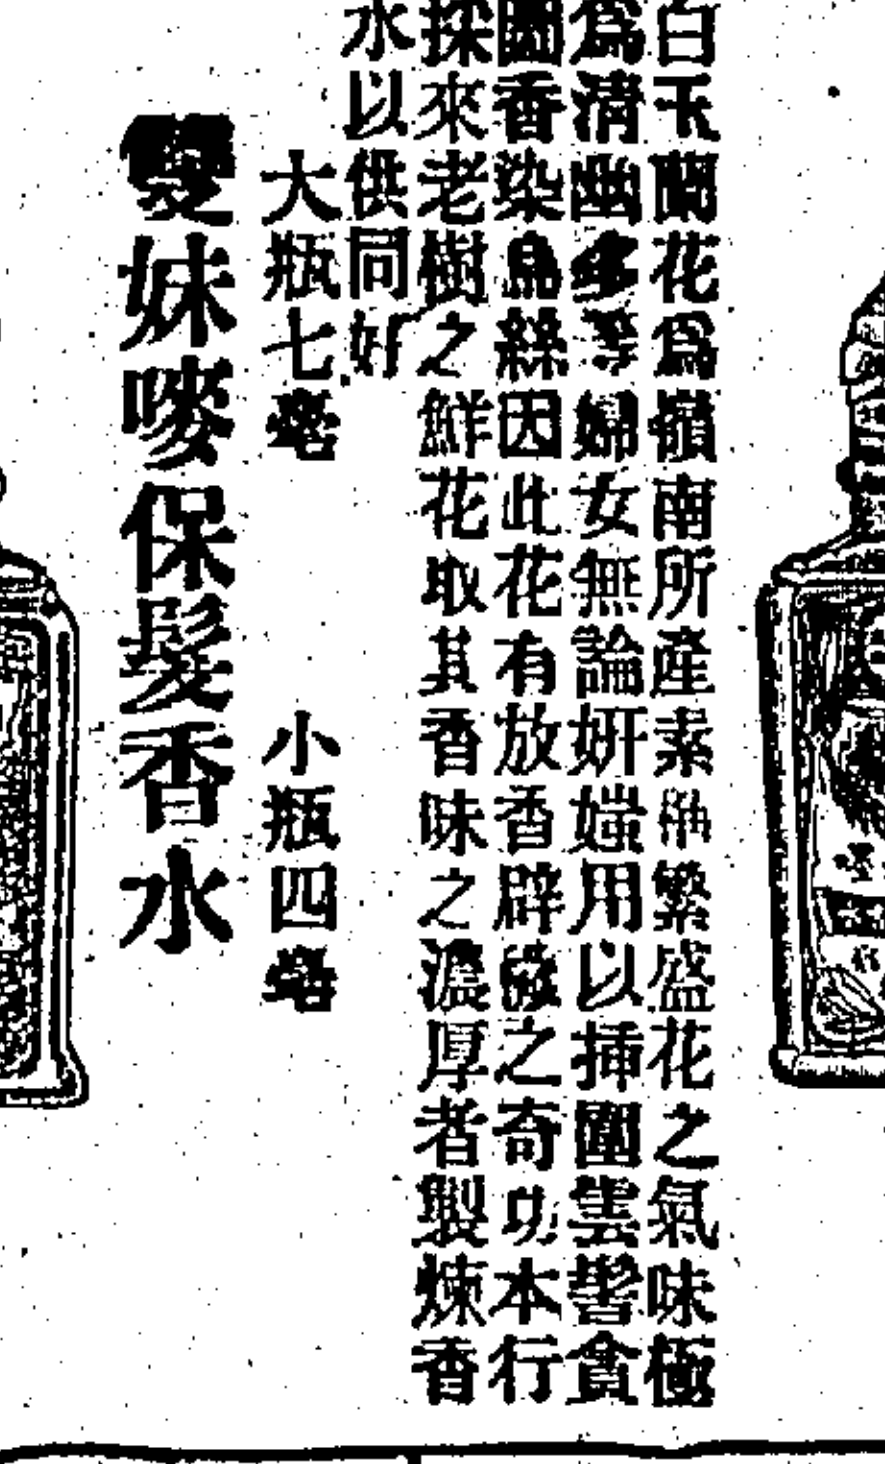 白玉蘭花爲嶺南所產素稱繁盛花之氣味極
爲清幽多等婦女無論妍媸用以插圍雲髻貪
圖香染鳥絲因此花有放香辟穢之奇功本行
採來老樹之鮮花取其香味之濃厚者製煉香
水以供同好
大瓶七毫 小瓶四毫
雙妹嘜保髮香水